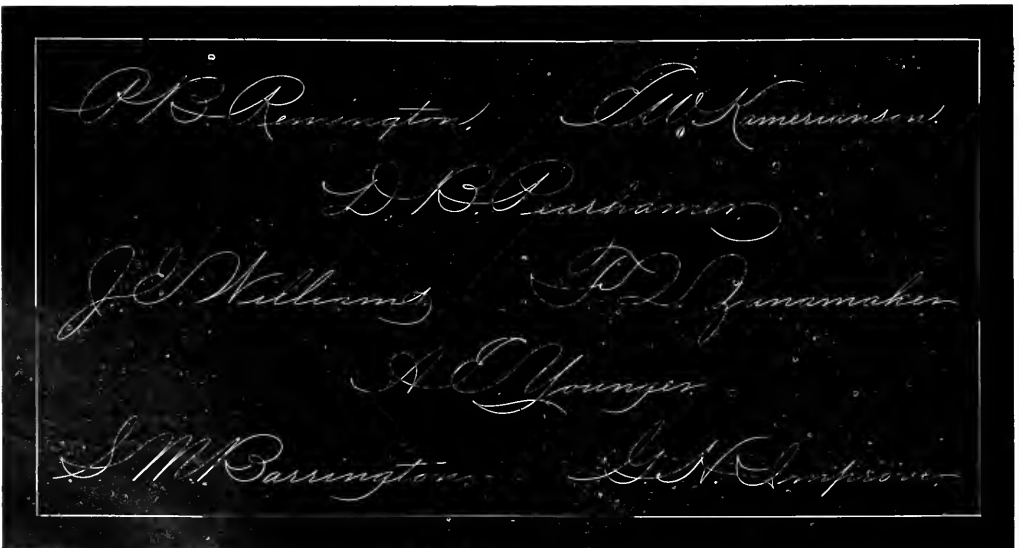 P. B. Remington. T. W. Kimerianson.
D. B. Pearhamer.
J. E. Williams F. Q. Zinamaker
A. E. Younger
S. M. Barrington. G. N. Improve.